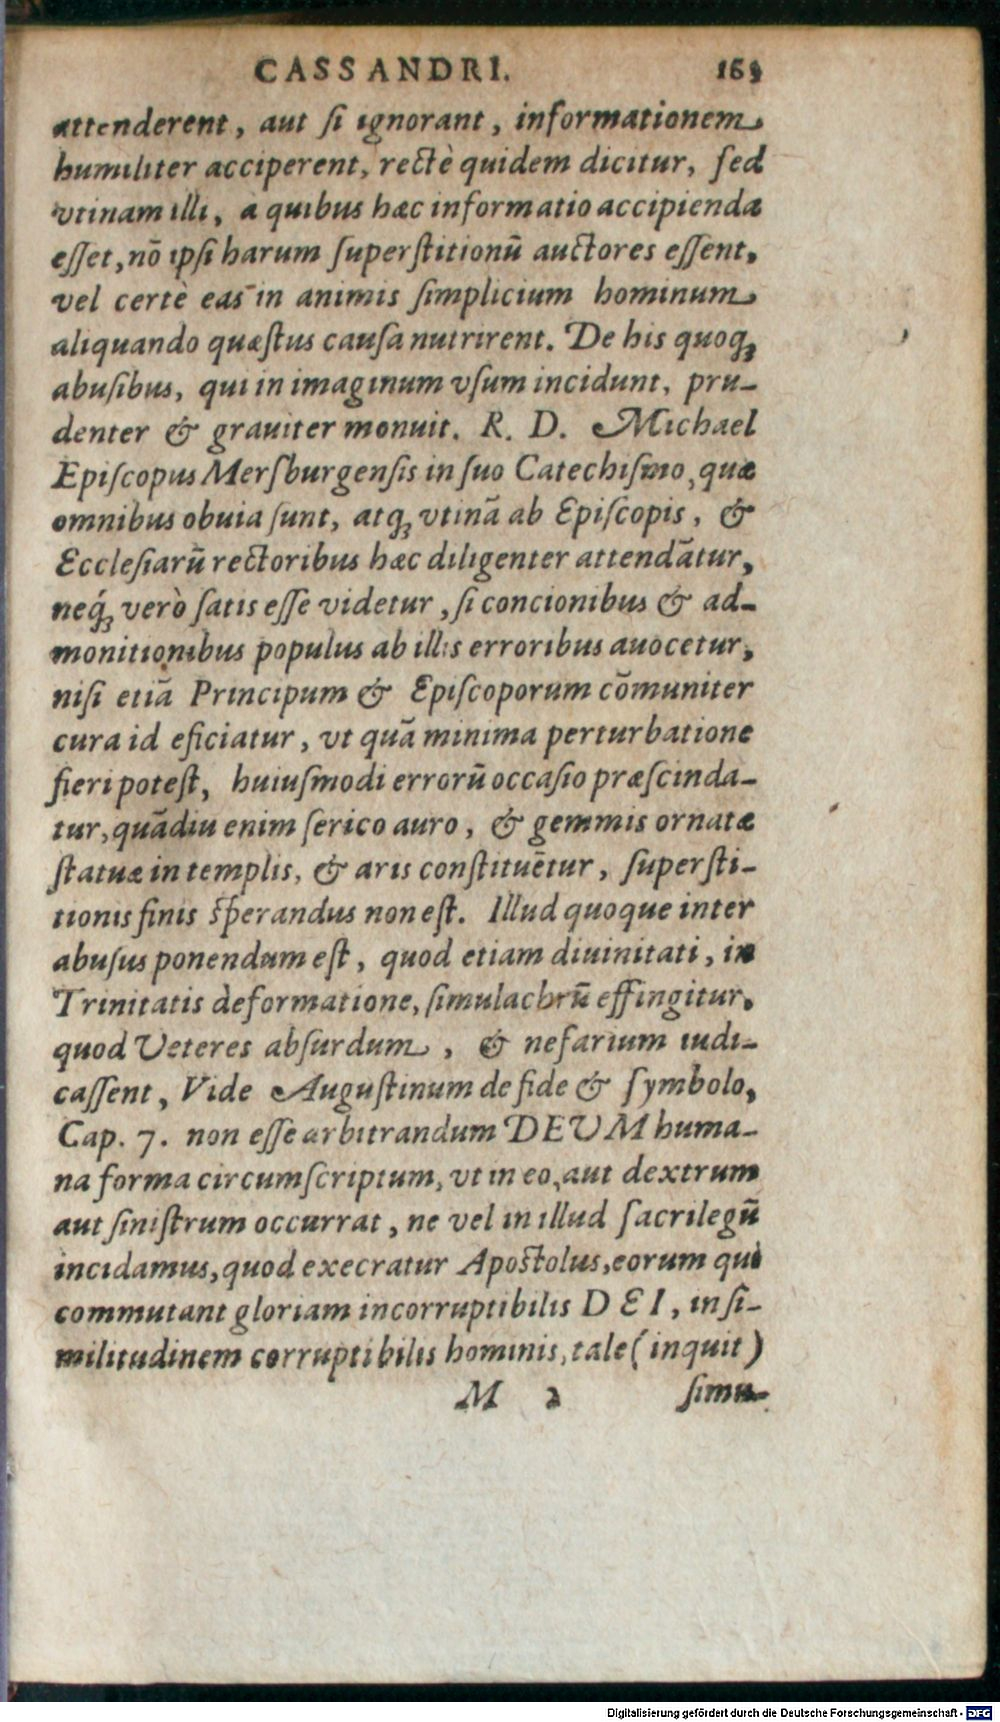 CASSANDRI. 163
attenderent, aut ſi ignorant, informationem
humiliter acciperent, rectè quidem dicitur, ſed
vtinam illi, a quibus hæc informatio accipienda
eſſet, nō ipſi harum ſuperſtitionū auctores eſſent,
vel certè eas in animis ſimplicium hominum
aliquando quæſtus cauſa nutrirent. De his quoq́;
abuſibus, qui in imaginum vſum incidunt, pru-
denter & grauiter monuit. R. D. Michael
Epiſcopus Merſburgenſis in ſuo Catechiſmo, quæ
omnibus obuia ſunt, atq; vtinā ab Epiſcopis, &
Eccleſiarū rectoribus hæc diligenter attendātur,
neq́; verò ſatis eſſe videtur, ſi concionibus & ad-
monitionibus populus ab illis erroribus auocetur,
niſi etiā Principum & Epiſcoporum cōmuniter
cura id eficiatur, vt quā minima perturbatione
fieri poteſt, huiuſmodi errorū occaſio præſcinda-
tur, quādiu enim ſerico auro, & gemmis ornatæ
ſtatuæ in templis, & aris conſtituētur, ſuperſti-
tionis finis ſperandus non eſt. Illud quoque inter
abuſus ponendum eſt, quod etiam diuinitati, in
Trinitatis deformatione, ſimulachrū effingitur,
quod Veteres abſurdum, & nefarium iudi-
caſſent, Vide Auguſtinum de fide & ſymbolo,
Cap. 7. non eſſe arbitrandum DEUM huma-
na forma circumſcriptum, vt in eo, aut dextrum
aut ſiniſtrum occurrat, ne vel in illud ſacrilegū
incidamus, quod execratur Apoſtolus, eorum qui
commutant gloriam incorruptibilis DEI, in ſi-
militudinem corruptibilis hominis, tale (inquit)
M 2 ſimu-
Digitalisierung gefördert durch die Deutsche Forschungsgemeinschaft - DFG